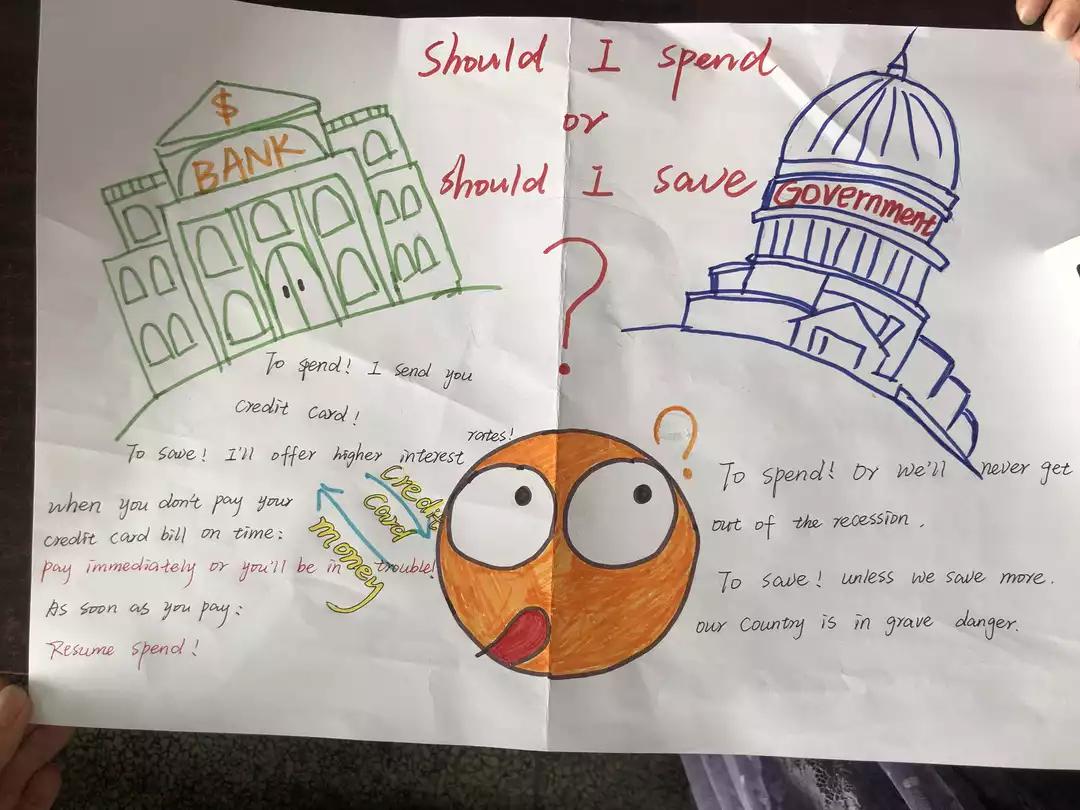 Should I spend
or
should I save
?
$
BANK
Government
To spend! I send you
credit card!
To save! I'll offer higher interest rates!
when you don't pay your
credit card bill on time:
pay immediately or you'll be in trouble!
As soon as you pay:
Resume spend!
credit
card
money
?
To spend! Or we'll never get
out of the recession.
To save! unless we save more.
our country is in grave danger.